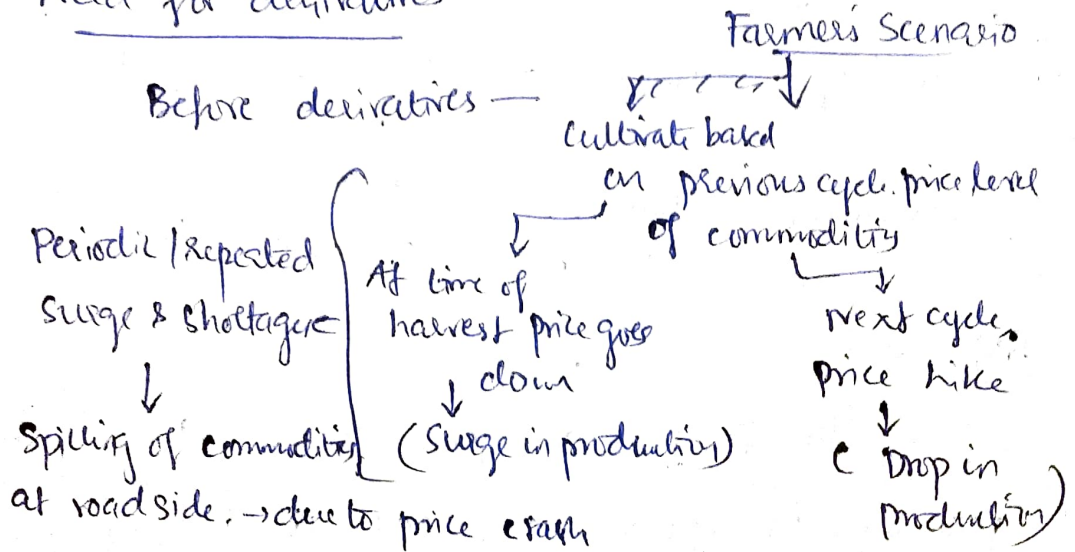 Need for derivatives
Farmer's Scenario
Before derivatives —
Cultivate based
on previous cycle. price level
of commodities
Periodic / Repeated
Surge & Shortage
At time of
harvest price goes
down
(Surge in production)
Next cycle,
price hike
( Drop in
production)
Spilling of commodities
at roadside. → due to price crash